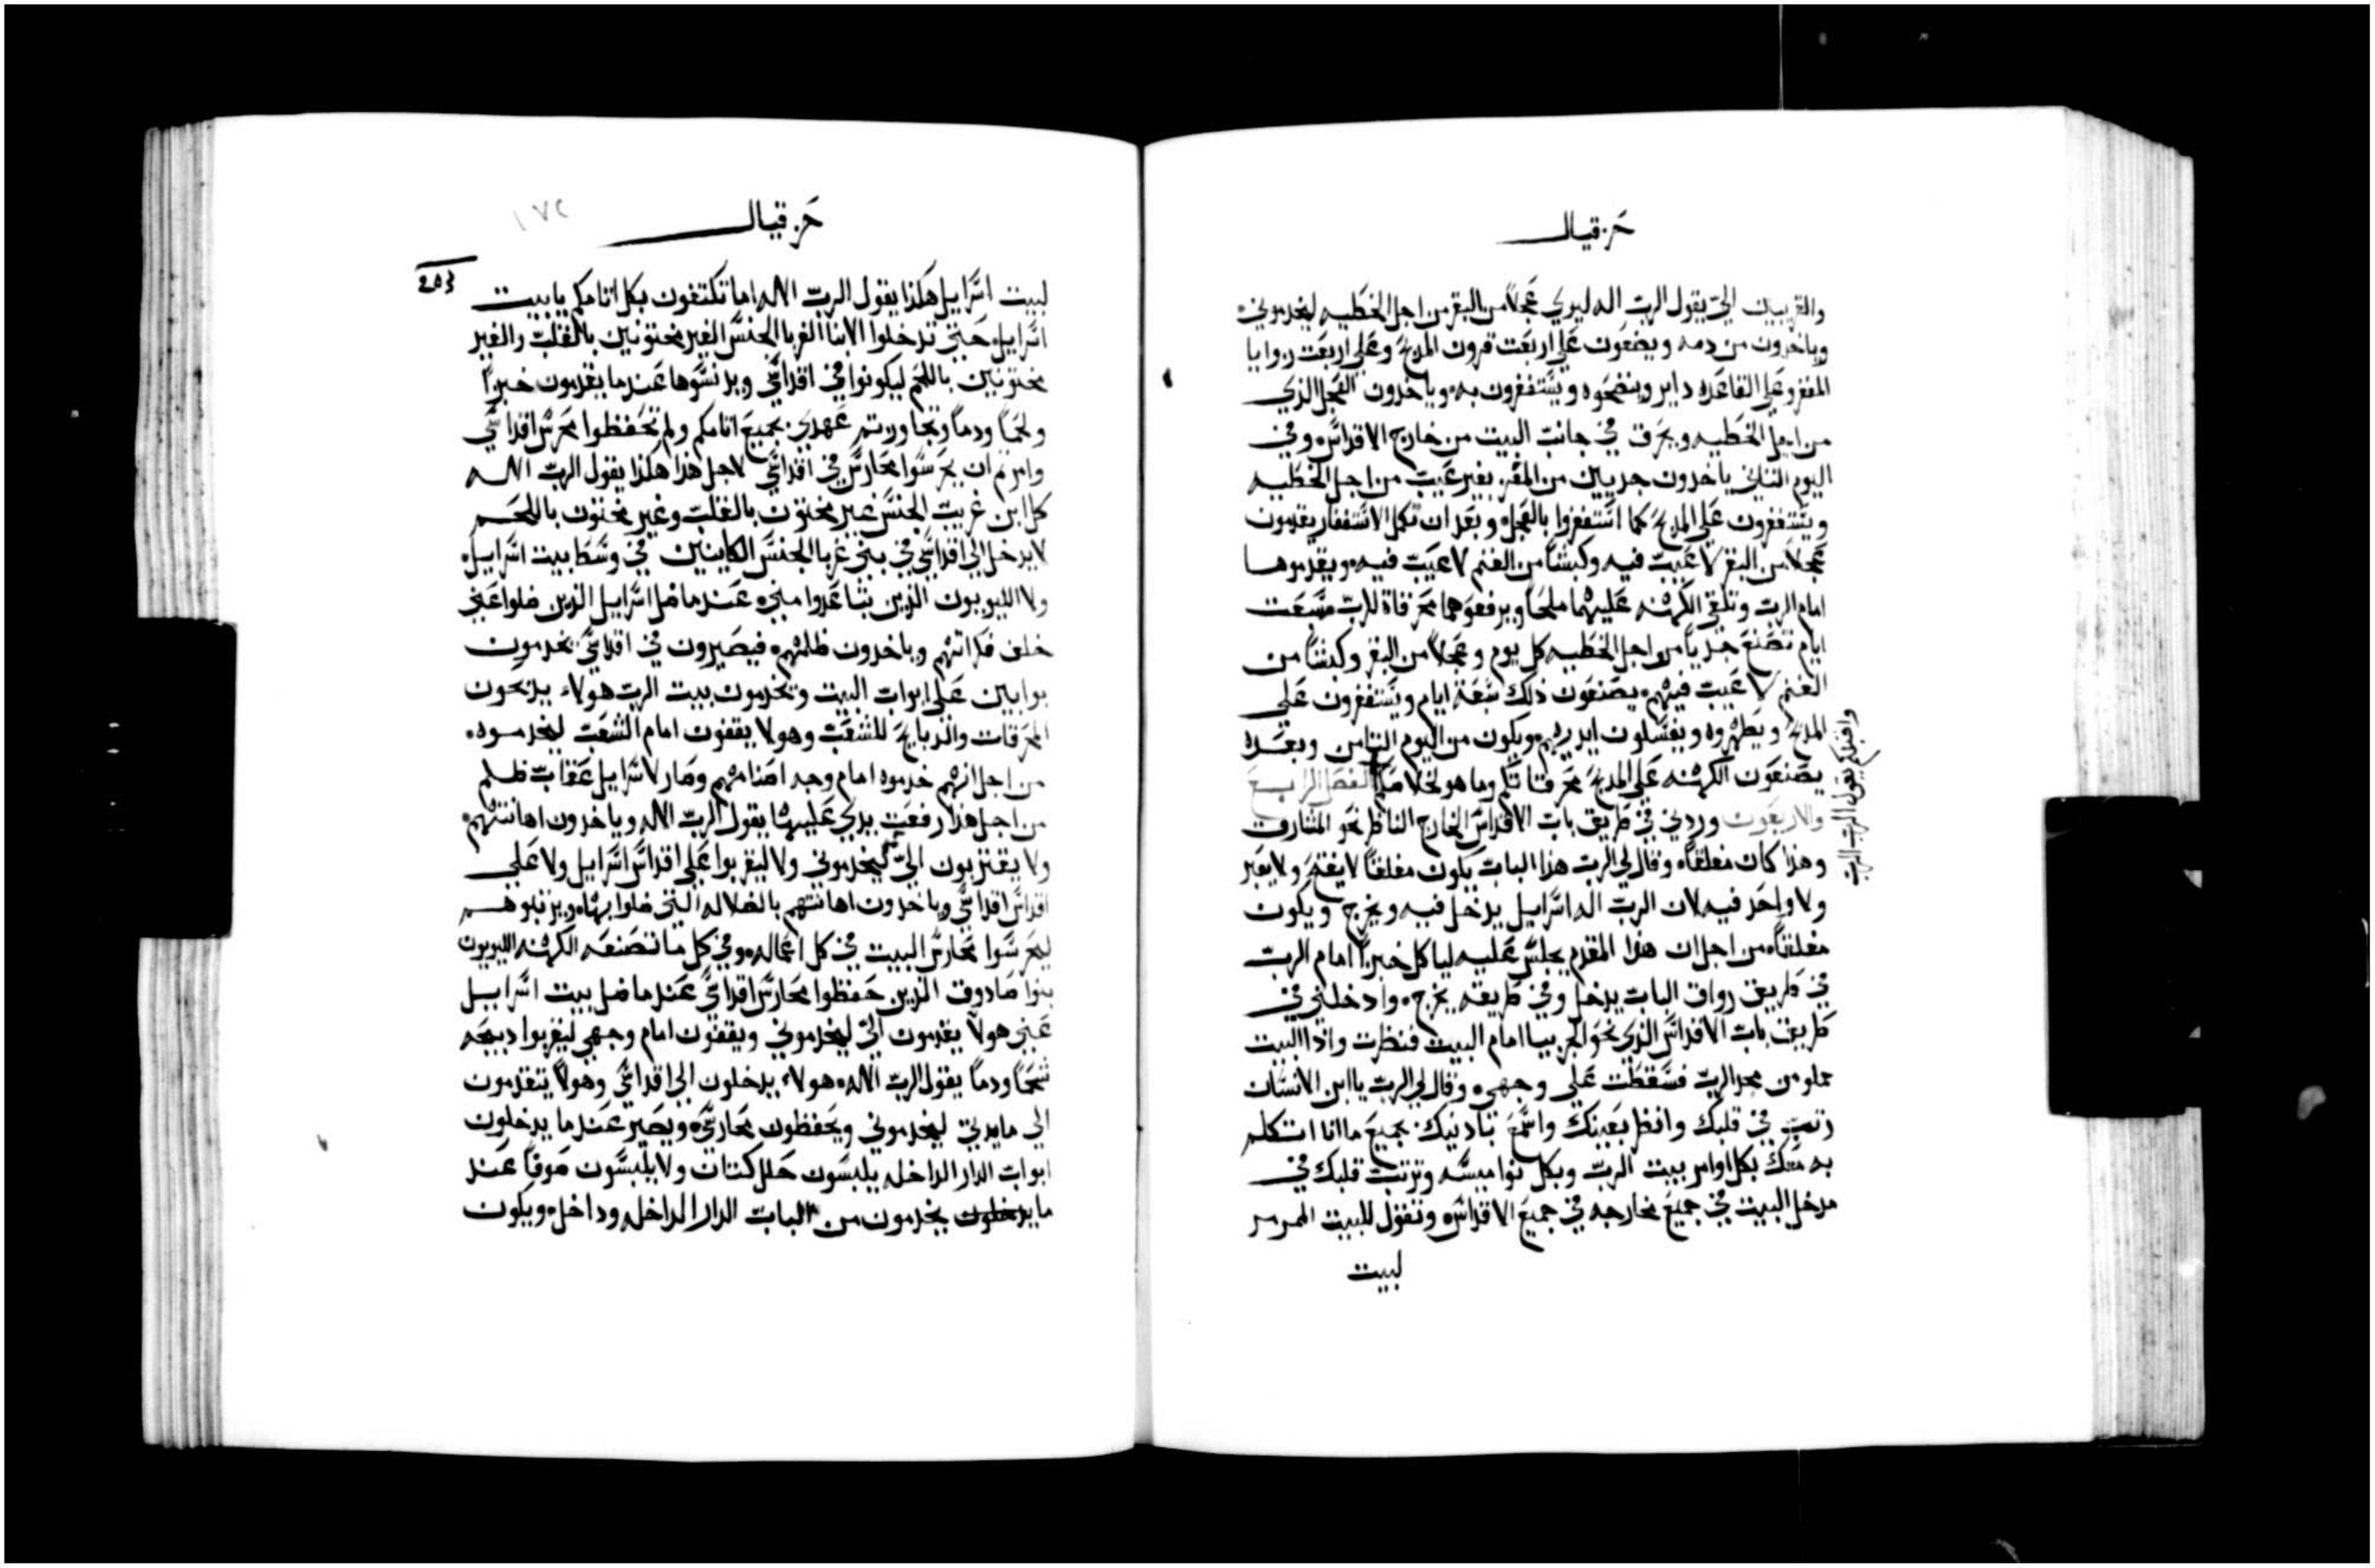 حزقيال
والقريبين الي يقول الرب اله ليوي عجلاً من البقر من اجل الخطيه ليخدموني
وياخدون من دمه ويضعون علي اربعت قرون المدبح وعلي اربعت زوايا
المقفز وعلي القاعده داير وينضحوه ويستغفرون به وياخدون العجل الذي
من اجل الخطيه ويحرق في جانب البيت من خارج الاقداس وفي
اليوم التاني ياخدون جديين من المعز بغير عيب من اجل الخطيه
ويستغفرون علي المدبح كما استغفروا بالعجل وبعد ان تكمل الاستغفار يقدمون
عجلاً من البقر لا عيب فيه وكبشاً من الغنم لا عيب فيه ويقدموها
امام الرب وتلقي الكهنه عليهما ملحاً ويرفعوهما محرقاة للرب سبعت
ايام تصنع جدياً من اجل الخطيه كل يوم وعجلاً من البقر وكبشاً من
الغنم لا عيب فيهم يصنعون ذلك سبعة ايام ويستغفرون علي
المدبح ويطهروه ويغسلون ايديهم ويكون من اليوم التامن وبعده
يصنعون الكهنه علي المدبح محرقاتكم وما هو لخلاصكم الفصل الرابع
واقبلكم يقول الرب الرب
والاربعون وردني في طريق باب الاقداس الخارج الناظر نحو المشارق
وهذا كان مغلقاً وقال لي الرب هذا الباب يكون مغلقاً لا يفتح ولا يعبر
ولا واحد فيه لان الرب اله اسرايل يدخل فيه ويخرج ويكون
مغلقاً من اجل ان هذا المقدم يجلس عليه لياكل خبزاً امام الرب
في طريق رواق الباب يدخل وفي طريقه يخرج وادخلني في
طريق باب الاقداس الذي نحو الجربيا امام البيت فنظرت واذا البيت
مملو من مجد الرب فسقطت علي وجهي وقال لي الرب يا ابن الانسان
رتب في قلبك وانظر بعينك واسمع باذنيك بجميع ما انا اتكلم
به معك بكل اوامر بيت الرب وبكل نواميسه وترتب قلبك في
مدخل البيت في جميع مخارجه في جميع الاقداس وتقول للبيت المرمر
لبيت
حزقيال
١٧٢
203
لبيت اسرايل هكذا يقول الرب الاله اما تكتفون بكل اثامكم يا بيت
اسرايل حتي تدخلوا الابنا الغربا الجنس الغير مختونين بالقلب والغير
مختونين باللحم ليكونوا في اقداسي ويدنسوها عندما يقدمون خبزاً
ولحماً ودماً وتجاوزتم عهدي بجميع اثامكم ولم تحفظوا محرس اقداسي
وامرتم ان يحرسوا محارس في اقداسي لاجل هذا هكذا يقول الرب الاله
كل ابن غريب الجنس غير مختون بالقلب وغير مختون باللحم
لا يدخل الي اقداسي في بني غربا الجنس الكاينين في وسط بيت اسرايل
ولا الليويون الذين تباعدوا مني عندما ضل اسرايل الذين ضلوا عني
خلف فكراتهم وياخدون ظلمهم فيصيرون في اقداسي يخدمون
بوابين علي ابواب البيت وتخدمون بيت الرب هولاء يدبحون
المحرقات والدبايح للشعب وهولا يقفون امام الشعب ليخدموه
من اجل انهم خدموه امام وجه اصنامهم وصار لاسرايل عقاب ظلم
من اجل هذا رفعت يدي عليهم يقول الرب الاله وياخدون اهانتهم
ولا يقتربون الي ليخدموني ولا ليقربوا علي اقداس اسرايل ولا علي
اقداس اقداسي وياخدون اهانتهم بالضلاله التي ضلوا بها ويرتبوهم
ليحرسوا محارس البيت في كل اعماله وفي كل ما تصنعه الكهنه الليويون
بنوا صادوق الذين حفظوا محارس اقداسي عندما ضل بيت اسرايل
عني هولا يقدمون الي ليخدموني ويقفون امام وجهي ليقربوا دبيحه
شحماً ودماً يقول الرب الاله هولاء يدخلون الي اقداسي وهولا يتقدمون
الي مايدتي ليخدموني ويحفظون محارسي ويصير عندما يدخلون
ابواب الدار الداخله يلبسون حلل كتان ولا يلبسون صوفاً عند
ما يدخلون يخدمون من الباب الدار الداخله وداخل ويكون